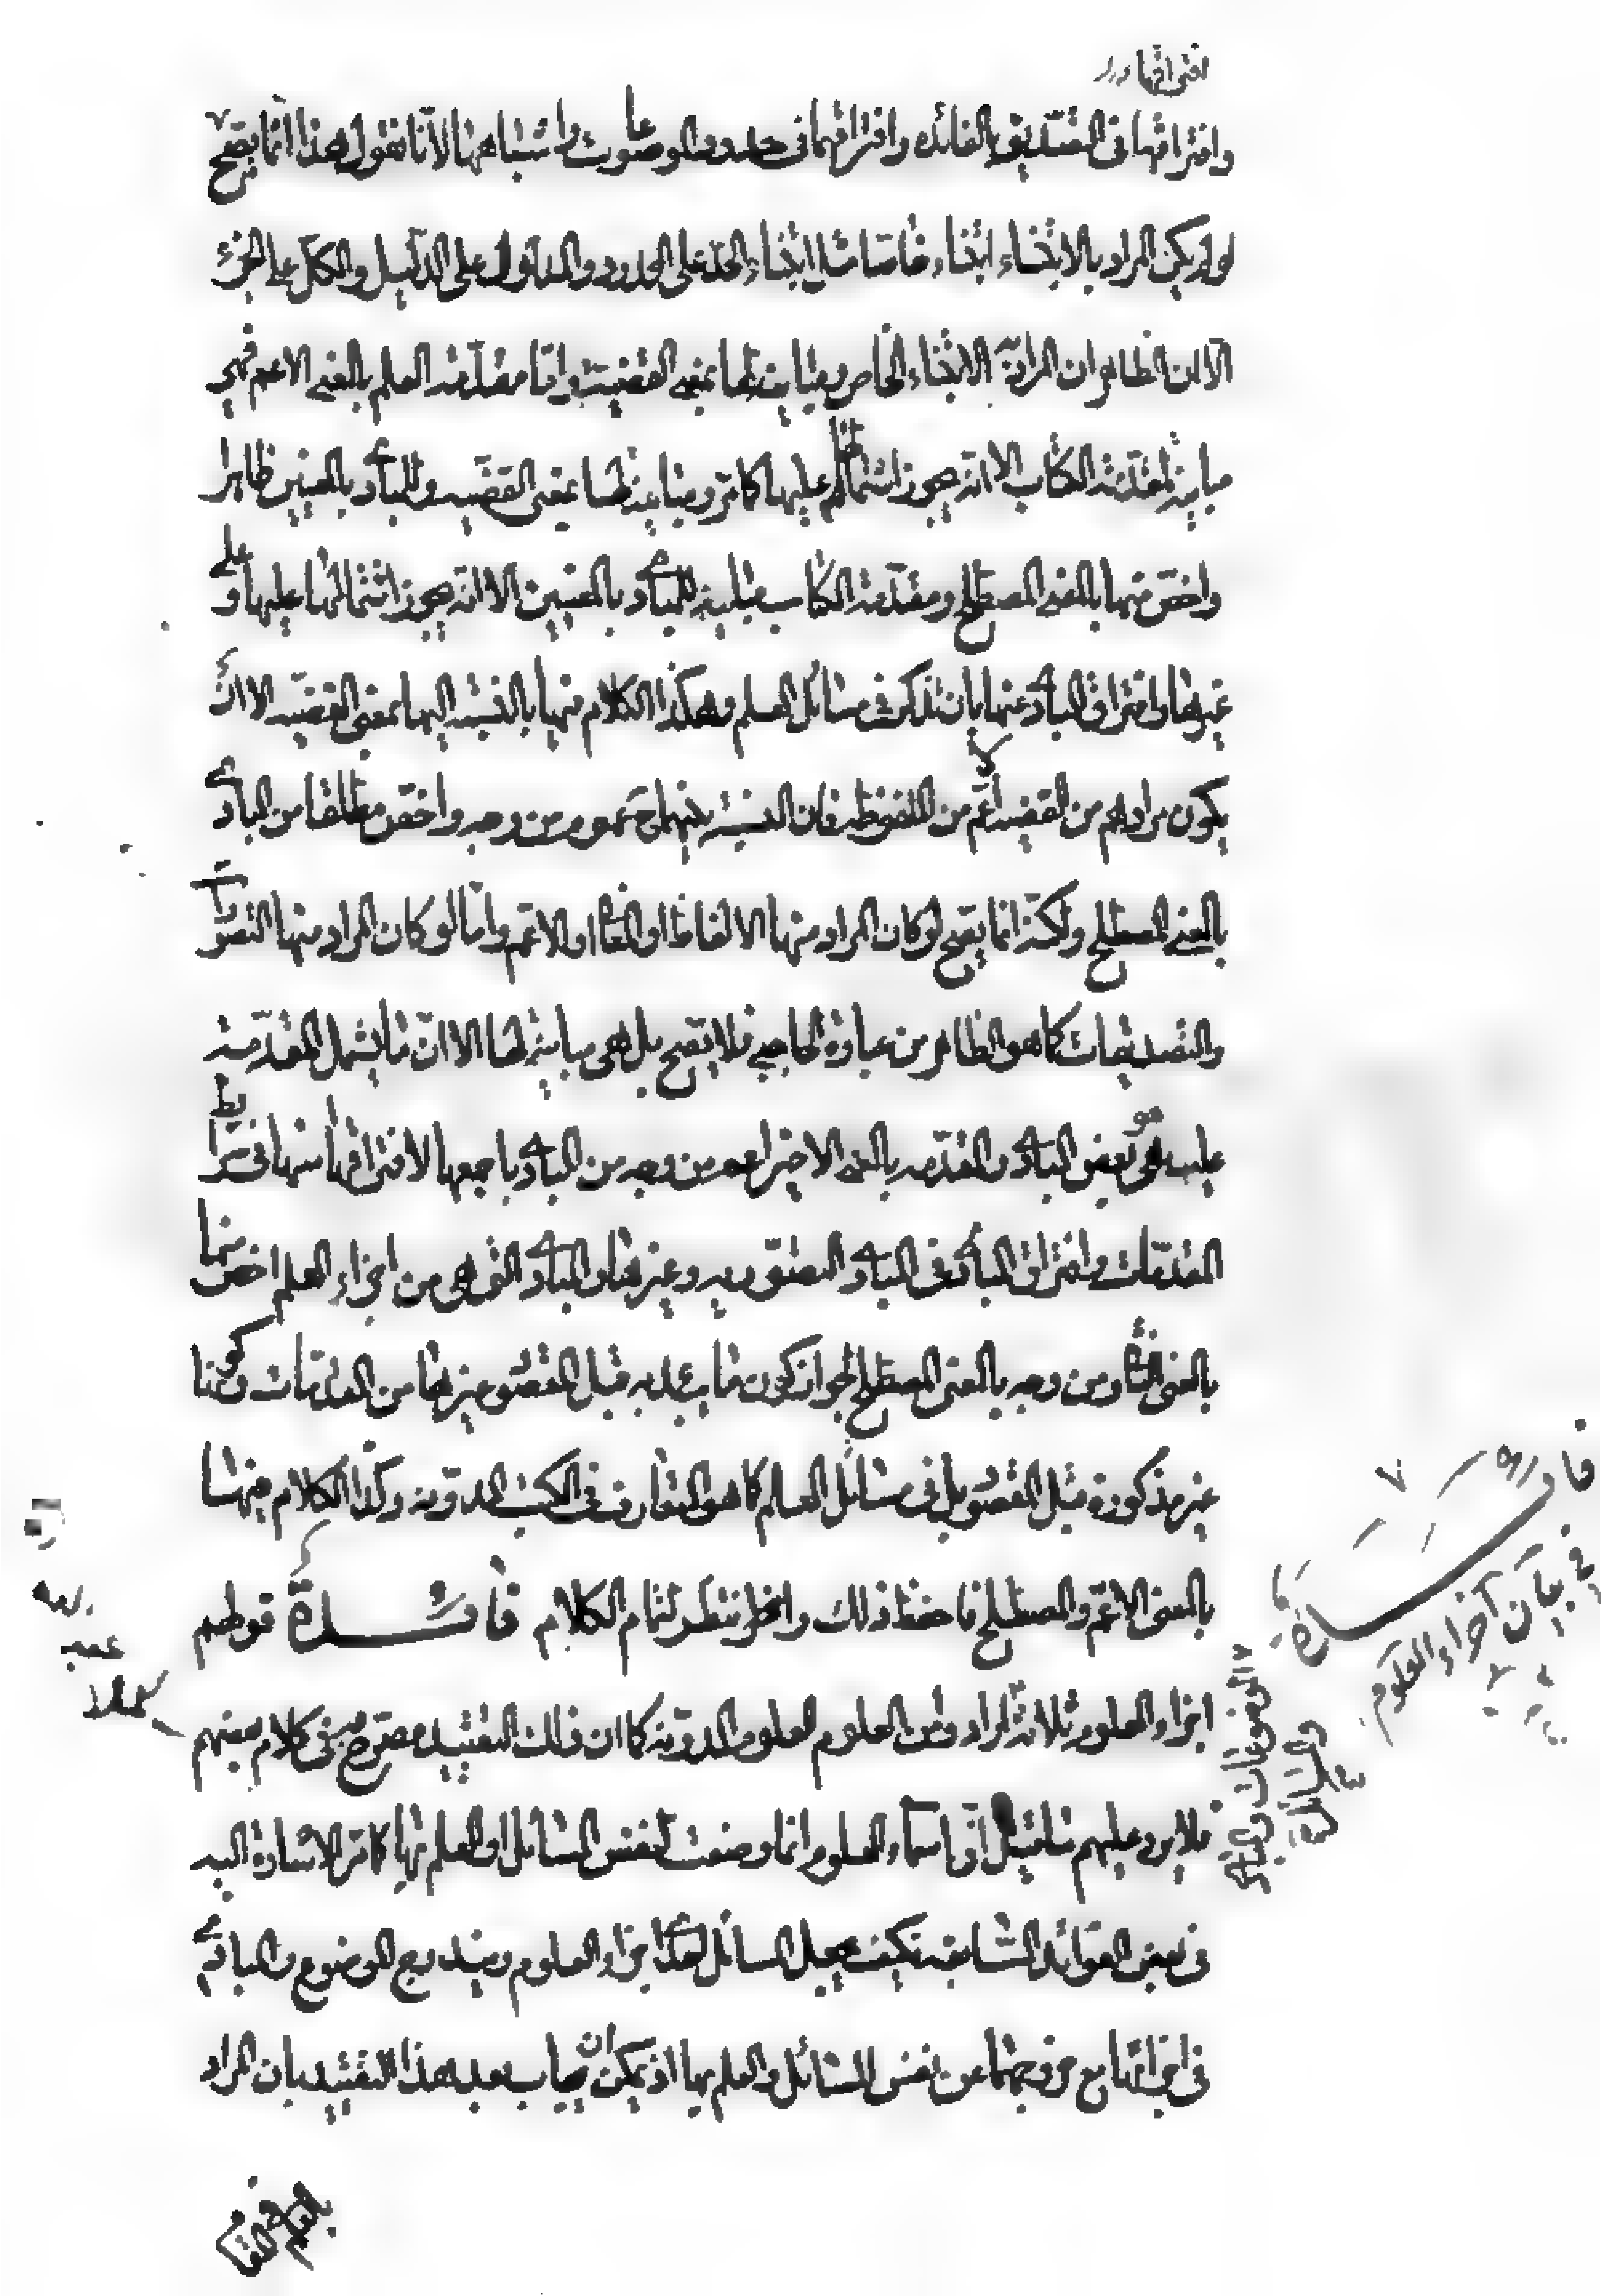 وافتراقها فى التصديق بالفائده وافتراقهما فى حدود الموضوعات واشباهها لانا نقول هذا انما يصح
لو لم يكن المراد بالابتناء ابتناء خاصا مثل ابتناء الحد على المحدود والمدلول على الدليل والكل على الجزء
الا ان الظاهر ان المراد به الابتناء الخاص ومباينتها بمعنى القضية واما مقدمة العلم بالمعنى الاعم فهى
مباينة لمقدمة الكتاب الا انه يجوز اشتمالها عليها كما مر ومباينة لها بمعنى القضيه وللمبادى بالمعنيين ظاهرا
واخص منهما بالمعنى المصطلح ومقدمة الكتاب مباينة للمبادى بالمعنيين الا انه يجوز اشتمالها عليها وعلى
غيرها وافتراق المبادى عنها بان تذكر فى مسائل العلم وهكذا الكلام فيها بالنسبة اليها بمعنى القضيه الا ان
يكون مرادهم من القضيه اعم من الملفوظه فان النسبة بينهما ح عموم من وجه واخص مطلقا من المبادى
بالمعنى المصطلح ولكنه انما يصح لو كان المراد منها الالفاظ او المعانى او الاعم واما لو كان المراد منها التصورات
والتصديقات كما هو الظاهر من عبارة الحاجبى فلا يصح بل هى مباينة لها الا ان ما يشتمل المقدمة
عليه هو بعض المبادى والمقدمه بالمعنى الاخير اعم من وجه من المبادى باجمعها لافتراقها منها فى شرايط
المقدمات وافتراق المبادى فى المبادى التصوريه وغيرها والمبادى التى هى من اجزاء العلم اخص منها
بالمعنى الثانى ومن وجه بالمعنى المصطلح لجواز كون ما يبدء به قبل المقصود غيرها من المقدمات وكونها
غير مذكورة قبل المقصود بل فى مسائل العلم كما هو المتعارف فى الكتب المدونه وكذا الكلام فيها
بالمعنى الاعم والمصطلح فاحفظ ذلك وانظر لتمام الكلام فائدة قولهم
اجزاء العلوم ثلاثة المراد من العلوم العلوم المدونه كما ان ذلك التقييد مصرح به فى كلام بعضهم
فلا يرد عليهم ما قيل ان اسماء العلوم انما وضعت لنفس المسائل او العلم بها كما مر الاشارة اليه
فى بعض الفوائد السابقه فكيف يجعل المسائل احدى اجزاء العلوم ويندرج الموضوع والمبادى
فى اجزائها مع خروجهما عن نفس المسائل والعلم بها اذ يمكن ان يجاب بعد هذا التقييد بان المراد
بالعلم فى المقام
فائدة
فى بيان اجزاء العلوم
الموضوعات والمبادى
والمسائل